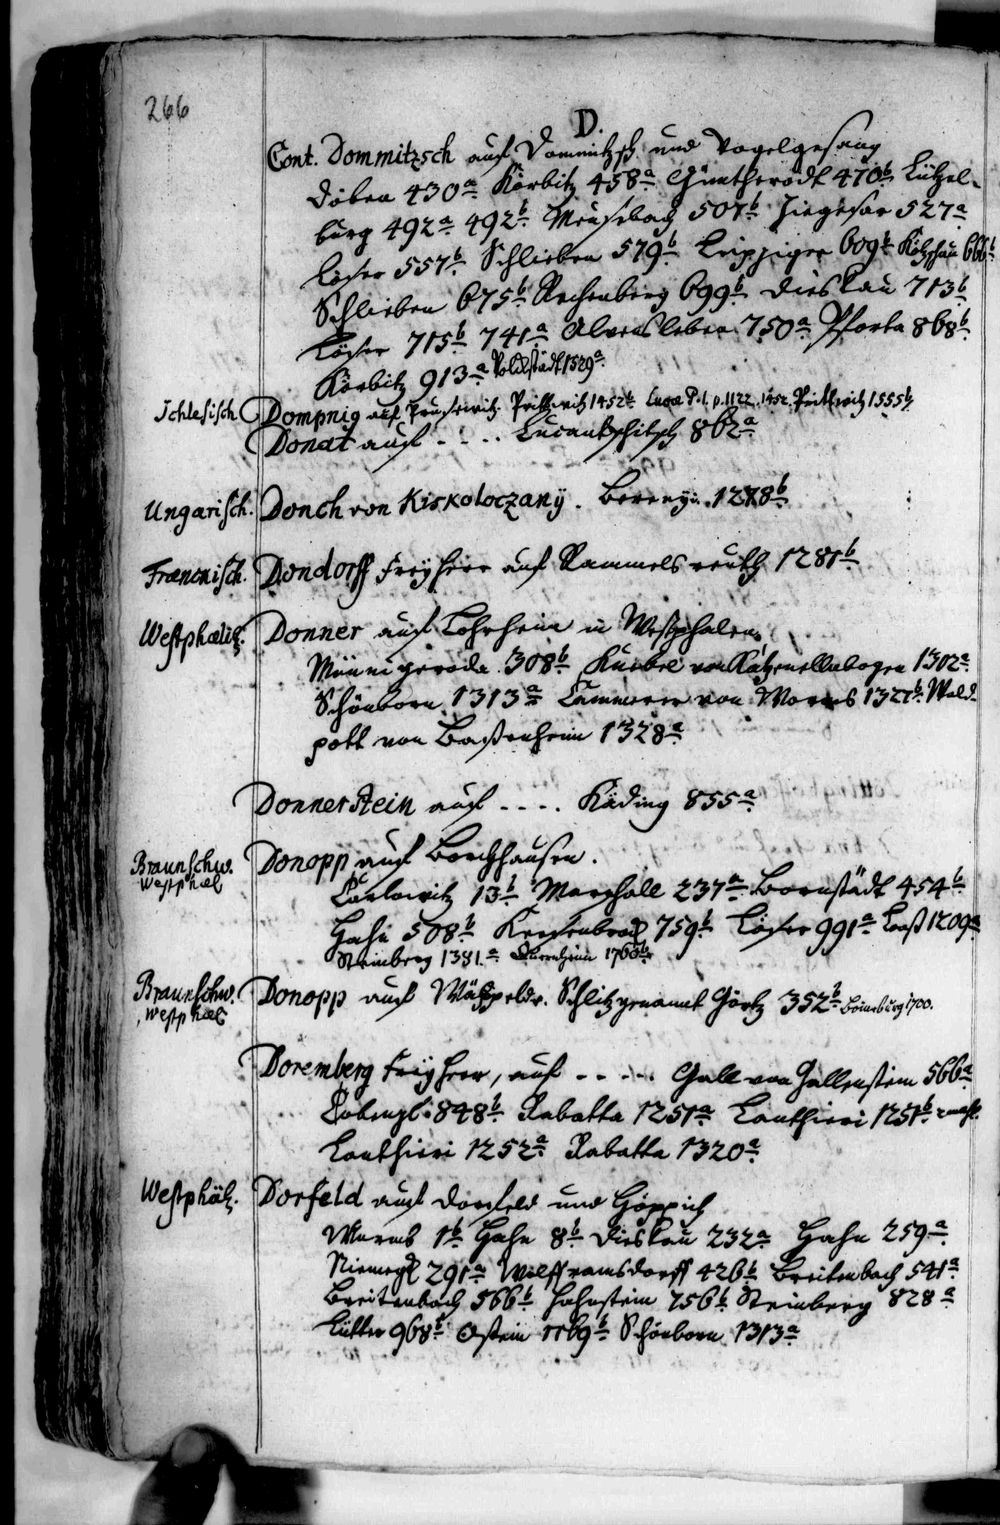 266
D.
Cont. Dommitzsch auf Dommitzsch und Vogelgesang
Döben 430a Körbitz 458a Güntherodt 470b Lützel-
burg 492a 492b Meusebach 507b Ziegesar 527a
Löser 557b Schlieben 579b Leipziger 609b Kötzschau 666b
Schlieben 675b Rechenberg 699b Dieskau 713b
Löser 715b 741a Alvensleben 750a Pforta 868b
Körbitz 913a 1529a
Schlesisch Dompnig auf Prittwitz 1452b Lucæ P. 1. p. 1122. 1452. Prittwitz 1555b
Donat auf - - - - 862a
Ungarisch. Donch von Kiskoloczanÿ. Bereny. 1278b
Francnisch. Dondorff Freyherr auf Rammelsreuth 1281b
Westphælisch. Donner auf Lohrheim in Westphalen
Münnigerode 308b Knebel von Katzenellnbogen 1302a
Schönborn 1313a Cammerer von Worms 1321b Wald-
pott von Baßenheim 1328a
Donnerstein auf - - - - Käding 855a
Braunschw. Westphæl Donopp auf Borchhausen.
Carlowitz 13b Marschall 237a Bornstädt 454b
Hahn 508b 759b Löser 991a 1209a
Steinberg 1381.a Quernheim 1760b
Braunschw. Westphæl Donopp auf Schlitz genannt Görtz 352b Boineburg 1700.
Doremberg Freyherr, auf - - - - - Gall von Gallenstein 566a
848b Rabatta 1251a Lanthieri 1251b
Lanthieri 1252a Rabatta 1320a
Westphäl. Dorfeld auf Dorfeld und Höppich
Worms 1b Hahn 8b Dieskau 232a Hahn 259a
291a Wolfframsdorff 426b Breitenbach 541a
Breitenbach 566b Hahnstein 756b Steinberg 828a
Lütter 968b Ostein 1169b Schönborn 1313a